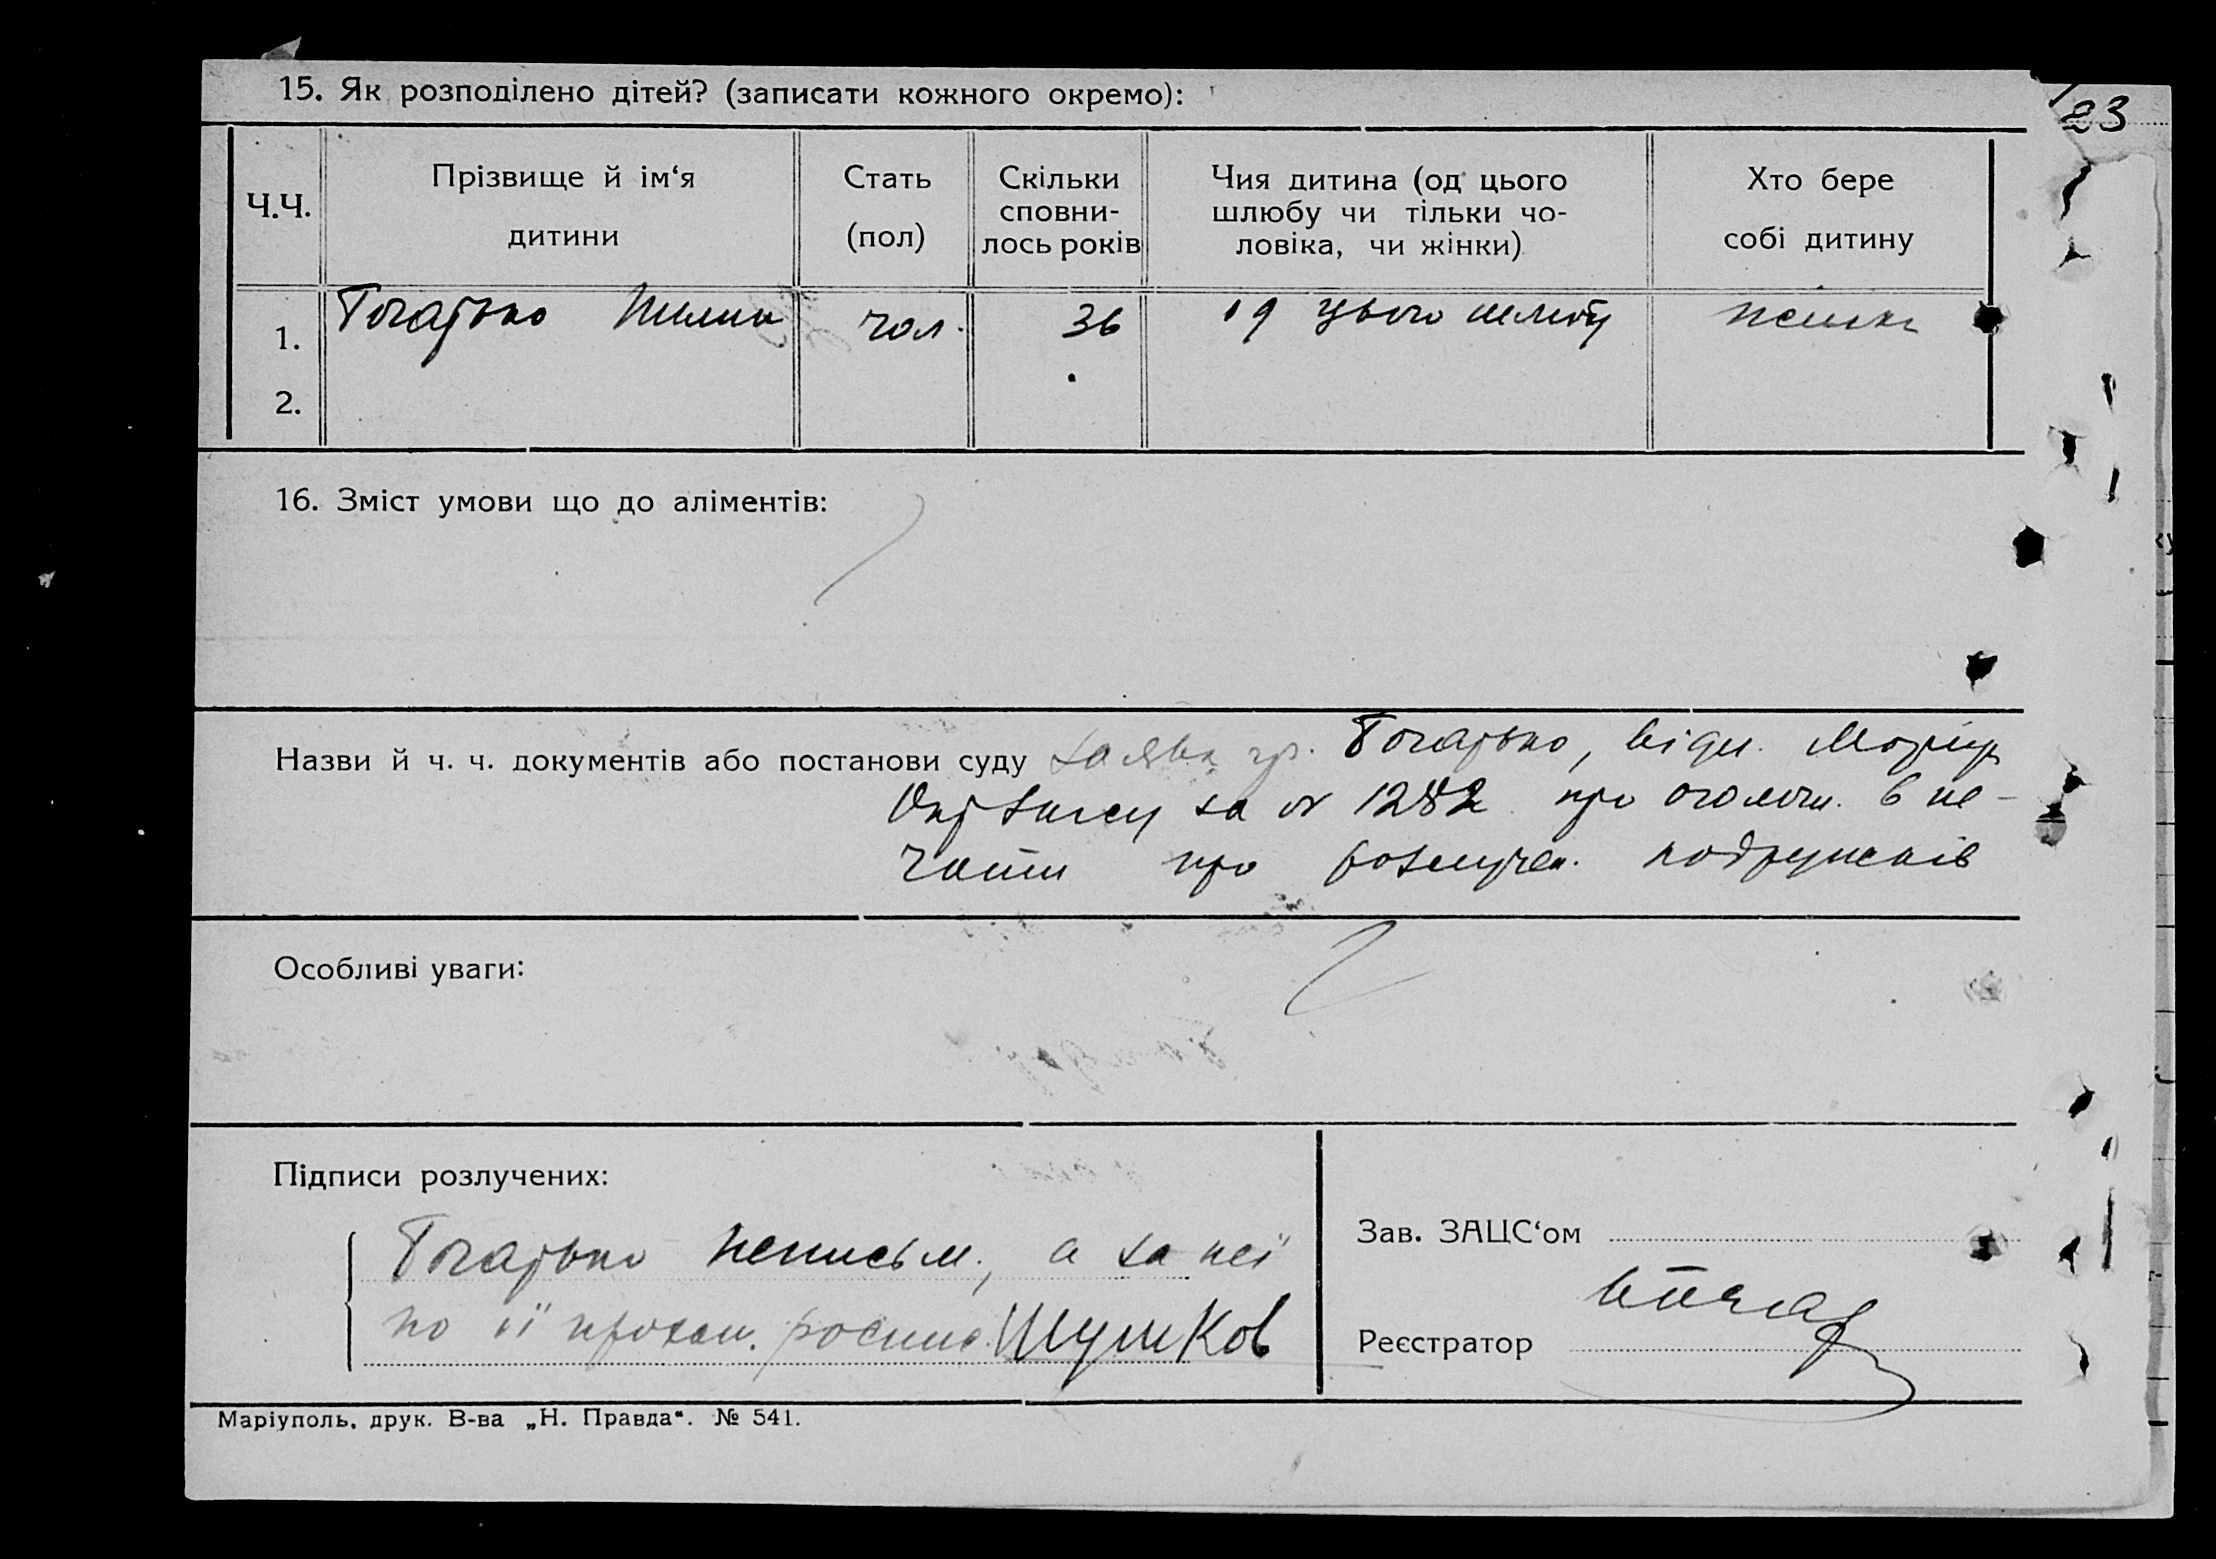 23
15. Як розподілено дітей? (записати кожного окремо):
Ч.Ч.
Прізвище й ім‘я дитини
Стать (пол)
Скільки сповни-
лось років
Чия дитина (од цього
шлюбу чи тільки чо-
ловіка, чи жінки)
Хто бере
собі дитину
1. чол. 36 од цього шлюбу
2.
16. Зміст умови що до аліментів:
Назви й ч. ч. документів або постанови суду заява гр.
за № 1282 про оголош. в пе-
чати про розлучен. подружжів
Особливі уваги:
Підписи розлучених:
неписьм., а за неї
по її прохан. Шушков
Зав. ЗАЦС‘ом
Реєстратор
Маріуполь, друк. В-ва „Н. Правда“. № 541.